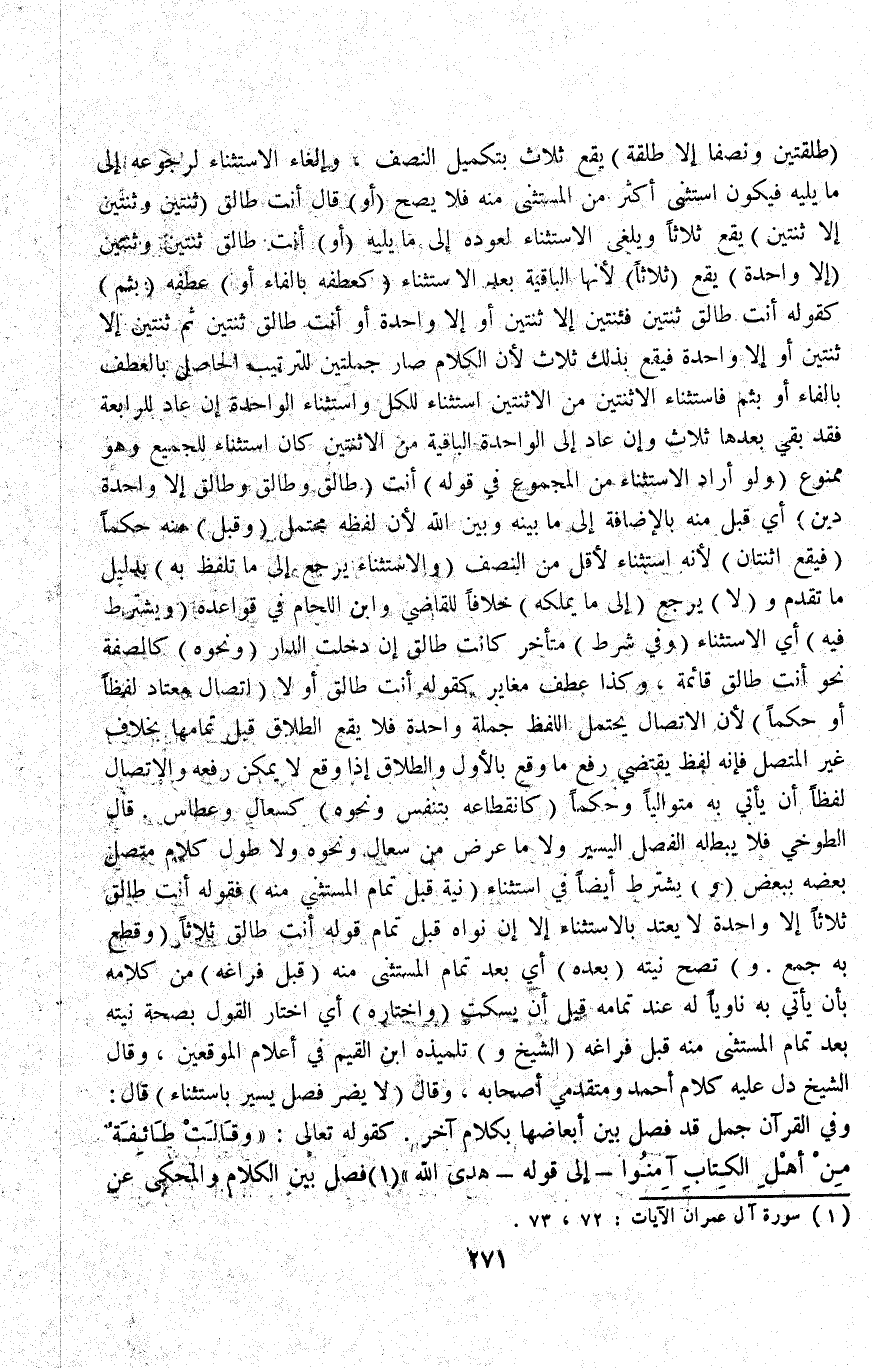 (طلقتين ونصفا إلا طلقة) يقع ثلاث بتكميل النصف ، وإلغاء الاستثناء لرجوعه إلى
ما يليه فيكون استثنى أكثر من المستثنى منه فلا يصح (أو) قال أنت طالق (ثنتين وثنتين
إلا ثنتين) يقع ثلاثاً ويلغى الاستثناء لعوده إلى ما يليه (أو) أنت طالق ثنتين وثنتين
(إلا واحدة) يقع (ثلاثاً) لأنها الباقية بعد الاستثناء (كعطفه بالفاء أو) عطفه (بثم)
كقوله أنت طالق ثنتين فثنتين إلا ثنتين أو إلا واحدة أو أنت طالق ثنتين ثم ثنتين إلا
ثنتين أو إلا واحدة فيقع بذلك ثلاث لأن الكلام صار جملتين للترتيب الحاصل بالعطف
بالفاء أو بثم فاستثناء الاثنتين من الاثنتين استثناء للكل واستثناء الواحدة إن عاد للرابعة
فقد بقي بعدها ثلاث وإن عاد إلى الواحدة الباقية من الاثنتين كان استثناء للجميع وهو
ممنوع (ولو أراد الاستثناء من المجموع في قوله) أنت (طالق وطالق وطالق إلا واحدة
دين) أي قبل منه بالإضافة إلى ما بينه وبين الله لأن لفظه محتمل (وقبل) منه حكماً
(فيقع اثنتان) لأنه استثناء لأقل من النصف (والاستثناء يرجع إلى ما تلفظ به) بدليل
ما تقدم و (لا) يرجع (إلى ما يملكه) خلافاً للقاضي وابن اللحام في قواعده (ويشترط
فيه) أي الاستثناء (وفي شرط) متأخر كانت طالق إن دخلت الدار (ونحوه) كالصفة
نحو أنت طالق قائمة ، وكذا عطف مغاير كقوله أنت طالق أو لا (اتصال معتاد لفظاً
أو حكماً) لأن الاتصال يحتمل اللفظ جملة واحدة فلا يقع الطلاق قبل تمامها بخلاف
غير المتصل فإنه لفظ يقتضي رفع ما وقع بالأول والطلاق إذا وقع لا يمكن رفعه والإتصال
لفظاً أن يأتي به متوالياً وحكماً (كانقطاعه بتنفس ونحوه) كسعال وعطاس . قال
الطوخي فلا يبطله الفصل اليسير ولا ما عرض من سعال ونحوه ولا طول كلام متصل
بعضه ببعض (و) يشترط أيضاً في استثناء (نية قبل تمام المستثنى منه) فقوله أنت طالق
ثلاثاً إلا واحدة لا يعتد بالاستثناء إلا إن نواه قبل تمام قوله أنت طالق ثلاثاً (وقطع
به جمع . و) تصح نيته (بعده) أي بعد تمام المستثنى منه (قبل فراغه) من كلامه
بأن يأتي به ناوياً له عند تمامه قبل أن يسكت (واختاره) أي اختار القول بصحة نيته
بعد تمام المستثنى منه قبل فراغه (الشيخ و) تلميذه ابن القيم في أعلام الموقعين ، وقال
الشيخ دل عليه كلام أحمد ومتقدمي أصحابه ، وقال (لا يضر فصل يسير باستثناء) قال :
وفي القرآن جمل قد فصل بين أبعاضها بكلام آخر . كقوله تعالى : «وقَالَتْ طَائِفَةٌ
مِنْ أَهْلِ الكِتَابِ آمِنُوا – إلى قوله – هدى الله» (١) فصل بين الكلام والمحكى عن
(١) سورة آل عمران الآيات : ٧٢ ، ٧٣ .
٢٧١